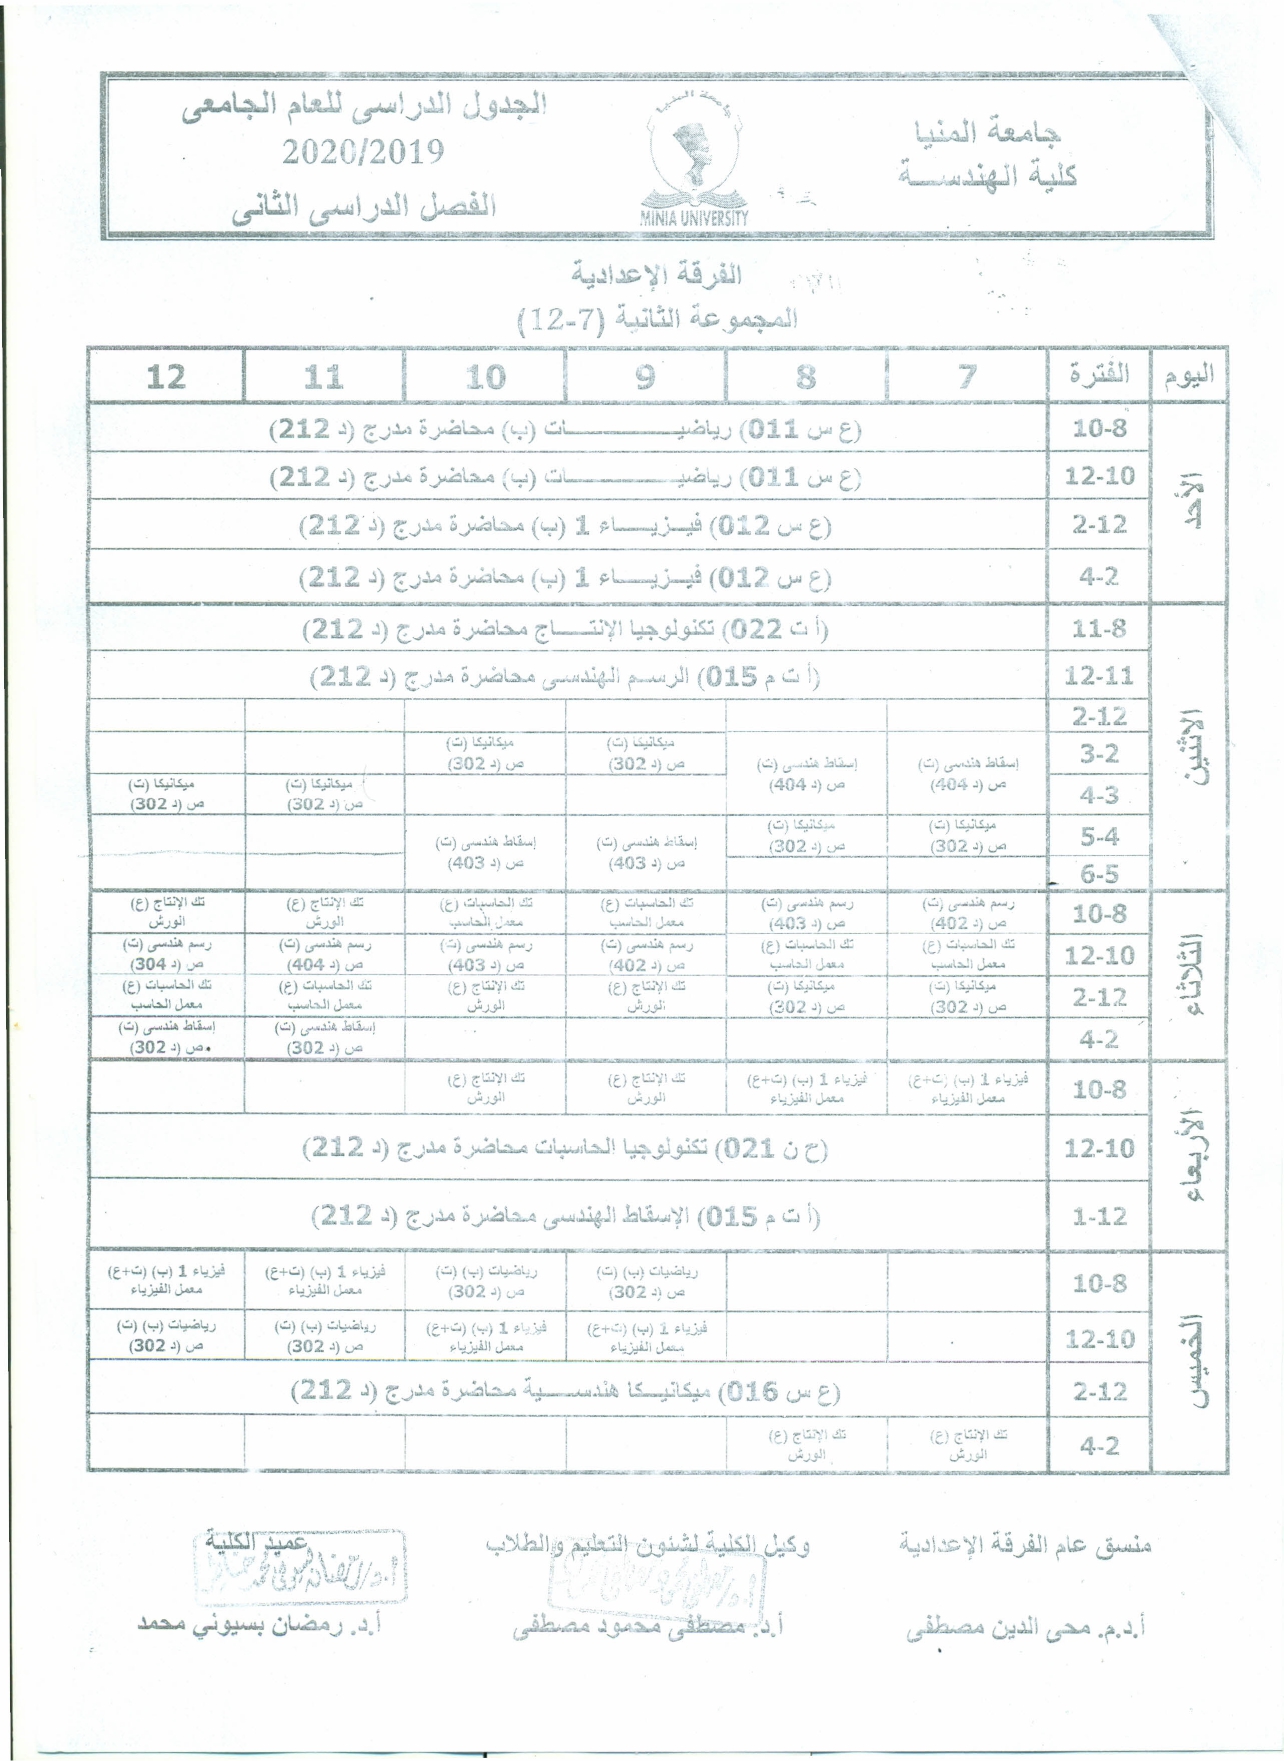 جامعة المنيا
كلية الهندســـة
جامعة المنيا
MINIA UNIVERSITY
الجدول الدراسى للعام الجامعى
2020/2019
الفصل الدراسى الثانى
الفرقة الإعدادية
المجموعة الثانية (7-12)
اليوم الفترة 7 8 9 10 11 12
الأحد
10-8 (ع س 011) رياضيـــــــــات (ب) محاضرة مدرج (د 212)
12-10 (ع س 011) رياضيـــــــــات (ب) محاضرة مدرج (د 212)
2-12 (ع س 012) فيـزيـــاء 1 (ب) محاضرة مدرج (د 212)
4-2 (ع س 012) فيـزيـــاء 1 (ب) محاضرة مدرج (د 212)
الاثنين
11-8 (أ ت 022) تكنولوجيا الإنتـــاج محاضرة مدرج (د 212)
12-11 (أ ت م 015) الرسـم الهندسى محاضرة مدرج (د 212)
2-12
3-2
4-3
إسقاط هندسى (ت) إسقاط هندسى (ت) ميكانيكا (ت) ميكانيكا (ت)
ص (د 404) ص (د 404) ص (د 302) ص (د 302)
ميكانيكا (ت) ميكانيكا (ت)
ص (د 302) ص (د 302)
5-4
6-5
ميكانيكا (ت) ميكانيكا (ت) إسقاط هندسى (ت) إسقاط هندسى (ت)
ص (د 302) ص (د 302) ص (د 403) ص (د 403)
الثلاثاء
10-8 رسم هندسى (ت) رسم هندسى (ت) تك الحاسبات (ع) تك الحاسبات (ع) تك الإنتاج (ع) تك الإنتاج (ع)
ص (د 402) ص (د 403) معمل الحاسب معمل الحاسب الورش الورش
12-10 تك الحاسبات (ع) تك الحاسبات (ع) رسم هندسى (ت) رسم هندسى (ت) رسم هندسى (ت) رسم هندسى (ت)
معمل الحاسب معمل الحاسب ص (د 402) ص (د 403) ص (د 404) ص (د 304)
2-12 ميكانيكا (ت) ميكانيكا (ت) تك الإنتاج (ع) تك الإنتاج (ع) تك الحاسبات (ع) تك الحاسبات (ع)
ص (د 302) ص (د 302) الورش الورش معمل الحاسب معمل الحاسب
4-2 إسقاط هندسى (ت) إسقاط هندسى (ت)
ص (د 302) ص (د 302)
الأربعاء
10-8 فيزياء 1 (ب) (ت+ع) فيزياء 1 (ب) (ت+ع) تك الإنتاج (ع) تك الإنتاج (ع)
معمل الفيزياء معمل الفيزياء الورش الورش
12-10 (ح ن 021) تكنولوجيا الحاسبات محاضرة مدرج (د 212)
1-12 (أ ت م 015) الإسقاط الهندسى محاضرة مدرج (د 212)
الخميس
10-8 رياضيات (ب) (ت) رياضيات (ب) (ت) فيزياء 1 (ب) (ت+ع) فيزياء 1 (ب) (ت+ع)
ص (د 302) ص (د 302) معمل الفيزياء معمل الفيزياء
12-10 فيزياء 1 (ب) (ت+ع) فيزياء 1 (ب) (ت+ع) رياضيات (ب) (ت) رياضيات (ب) (ت)
معمل الفيزياء معمل الفيزياء ص (د 302) ص (د 302)
2-12 (ع س 016) ميكانيــكا هندســـية محاضرة مدرج (د 212)
4-2 تك الإنتاج (ع) تك الإنتاج (ع)
الورش الورش
منسق عام الفرقة الإعدادية وكيل الكلية لشئون التعليم والطلاب عميد الكلية
أ.د.م. محى الدين مصطفى أ.د. مصطفى محمود مصطفى أ.د. رمضان بسيوني محمد